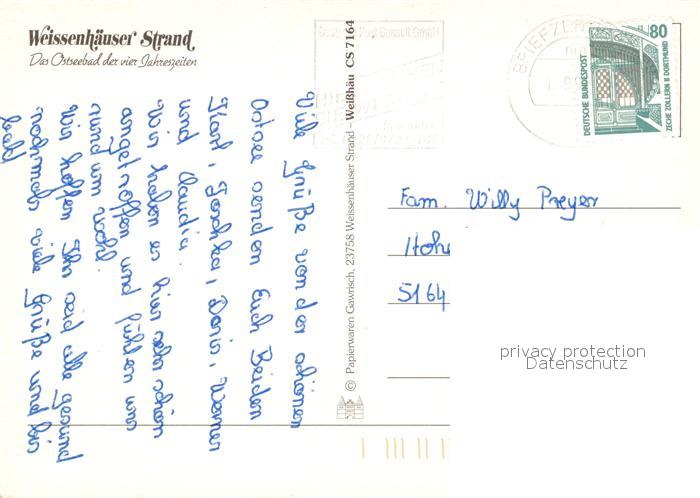 Weissenhäuser Strand
Das Ostseebad der vier Jahreszeiten
Viele Grüße von der schönen
Ostsee senden Euch Beiden
Kurt, Doris, Werner
und Claudia.
Wir haben es hier sehr schön
angetroffen und fühlen uns
rundum wohl.
Wir hoffen Ihr seid alle gesund
nochmals viele Grüße und bis
bald
© Papierwaren Gawrisch, 23758 Weissenhäuser Strand - Weißhäu CS 7164
Deutsche Post Consult GmbH
BRIEFZEN
80
DEUTSCHE BUNDESPOST
ZECHE ZOLLERN II DORTMUND
Fam. Willy Preyer
5164
privacy protection
Datenschutz